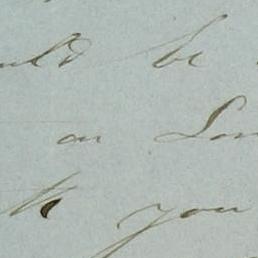 ould be
on Lon
you